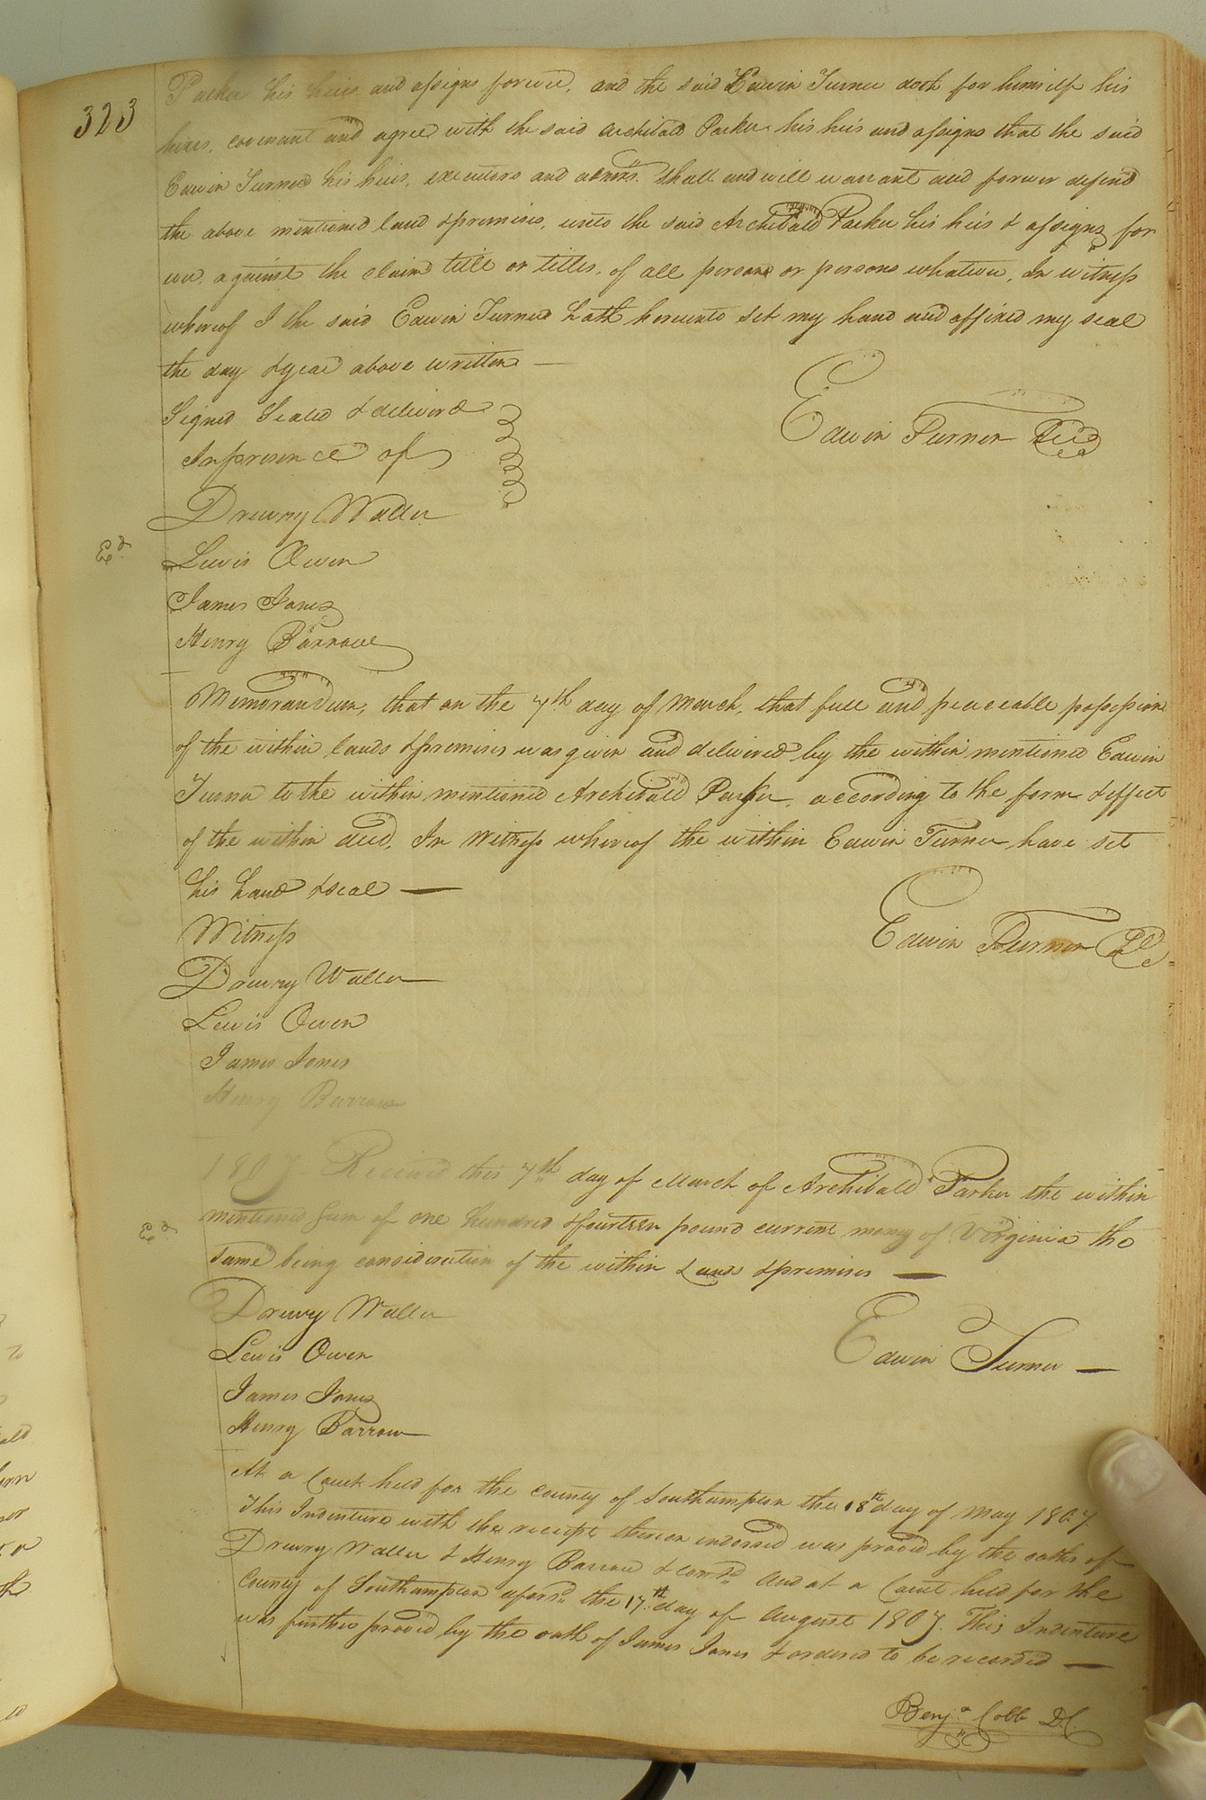 323
Parker his heirs and assigns forever, and the said Edwin Turner doth for himself his
heirs, covenant and agree with the said Archibald Parker his heirs and assigns that the said
Edwin Turner his heirs, executors and admors. shall and will warrant and forever defend
the above mentioned land & premises, unto the said Archibald Parker his heirs & assigns for
ever, against the claim title or titles, of all person or persons whatever, In witness
whereof I the said Edwin Turner hath hereunto set my hand and affixed my seal
the day & year above written —
Signed Sealed & delivered
In presence of
Edwin Turner
Drewry Waller
Exd.
Lewis Owen
James Jones
Henry Barrow
Memorandum, that on the 7th day of March, that full and peaceable possession
of the within lands & premises was given and delivered by the within mentioned Edwin
Turner to the within mentioned Archibald Parker, according to the form & effect
of the within deed, In Witness whereof the within Edwin Turner have set
his hand & seal —
Witness
Edwin Turner
Drewry Waller
Lewis Owen
James Jones
Henry Barrow
1807 Received this 7th day of March of Archibald Parker the within
mentioned sum of one hundred & fourteen pound current money of Virginia the
Exd.
same being consideration of the within Land & premises —
Drewry Waller
Edwin Turner —
Lewis Owen
James Jones
Henry Barrow
At a Court held for the county of Southampton the 18th day of May 1807.
This Indenture with the receipt thereon endorsed was proved by the oaths of
Drewry Waller & Henry Barrow & And at a Court held for the
County of Southampton aforsd. the 17th day of August 1807. This Indenture
was further proved by the oath of James Jones & ordered to be recorded —
Benja. Cobb D.C.